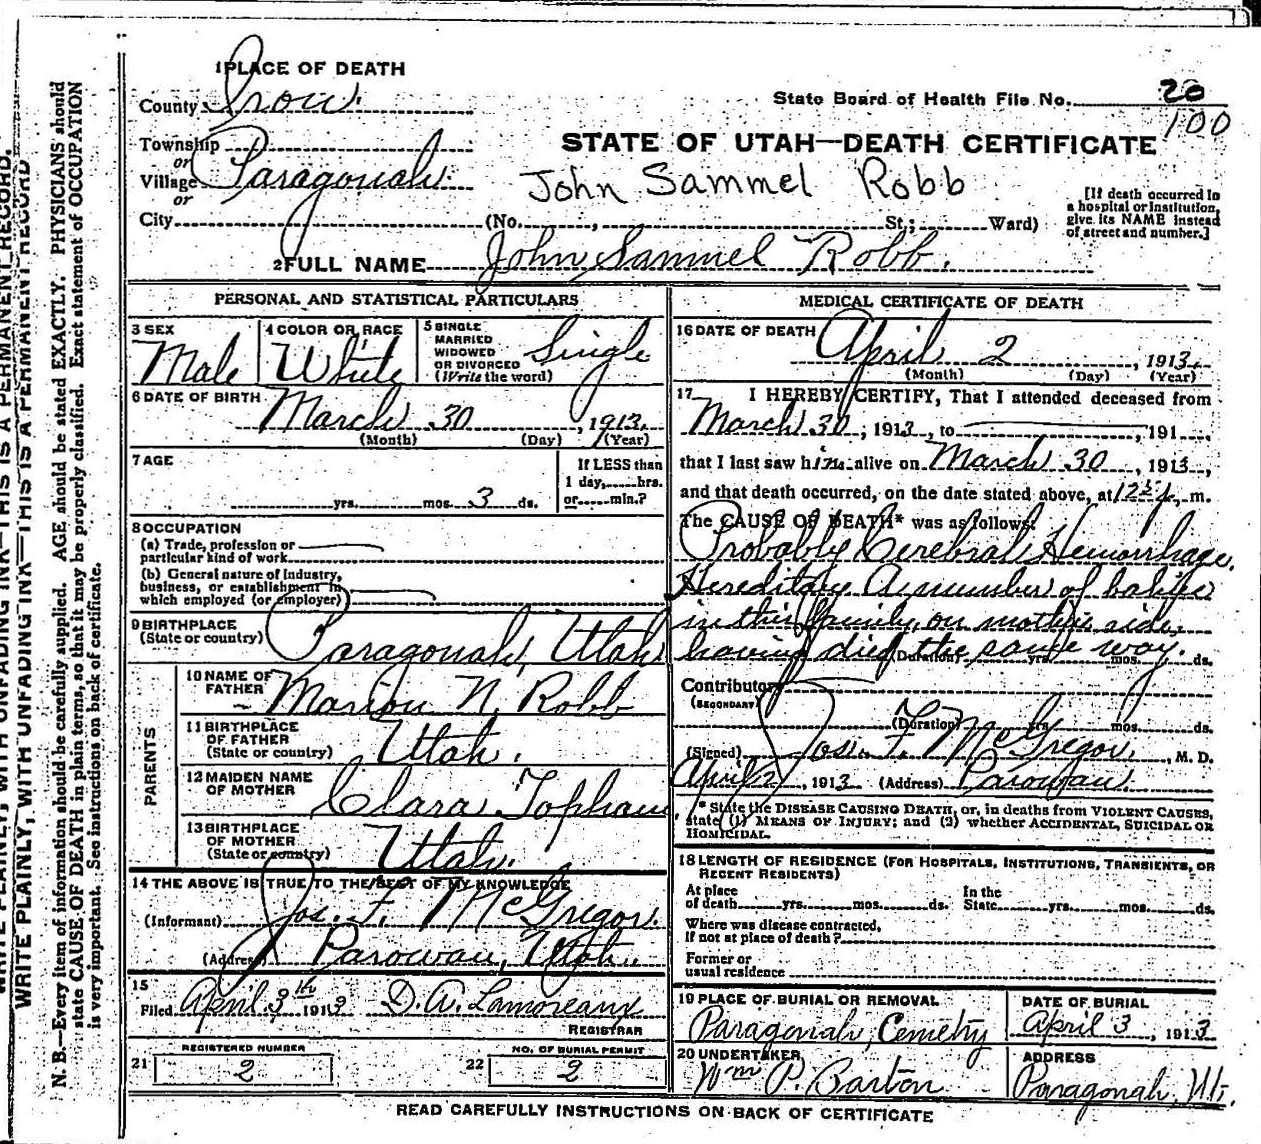 1 PLACE OF DEATH
County Iron.
State Board of Health File No. 20
100
Township
or
Village Paragonah.
or
City
STATE OF UTAH—DEATH CERTIFICATE
John Sammel Robb
(No. , St; Ward)
[If death occurred in
a hospital or institution,
give its NAME instead
of street and number.]
2 FULL NAME John Sammel Robb.
PERSONAL AND STATISTICAL PARTICULARS
3 SEX
Male
4 COLOR OR RACE
White
5 SINGLE
MARRIED
WIDOWED
OR DIVORCED
(Write the word)
Single
6 DATE OF BIRTH
March 30, 1913.
(Month) (Day) (Year)
7 AGE
yrs. mos. 3 ds.
If LESS than
1 day, hrs.
or min.?
8 OCCUPATION
(a) Trade, profession or
particular kind of work
(b) General nature of industry,
business, or establishment in
which employed (or employer)
9 BIRTHPLACE
(State or country)
Paragonah, Utah
PARENTS
10 NAME OF
FATHER
Marion N. Robb
11 BIRTHPLACE
OF FATHER
(State or country)
Utah.
12 MAIDEN NAME
OF MOTHER
Clara Topham
13 BIRTHPLACE
OF MOTHER
(State or country)
Utah.
14 THE ABOVE IS TRUE TO THE BEST OF MY KNOWLEDGE
(Informant) Jos. F. McGregor.
(Address) Parowan, Utah.
15
Filed April 3th 1913 D. A. Lamoreaux
REGISTRAR
21
REGISTERED NUMBER
2
22
NO. OF BURIAL PERMIT
2
MEDICAL CERTIFICATE OF DEATH
16 DATE OF DEATH
April 2, 1913.
(Month) (Day) (Year)
17 I HEREBY CERTIFY, That I attended deceased from
March 30, 1913, to , 191
that I last saw him alive on March 30, 1913,
and that death occurred, on the date stated above, at m.
The CAUSE OF DEATH* was as follows:
Probably Cerebral Hemorrhage.
Hereditary A number of babies
in this family, on mothers side,
having died the same way.
(Duration) yrs. mos. ds.
Contributory
(SECONDARY)
(Duration) yrs. mos. ds.
(Signed) Jos. F. McGregor, M. D.
April 2, 1913. (Address) Parowan.
* State the DISEASE CAUSING DEATH, or, in deaths from VIOLENT CAUSES,
state (1) MEANS OF INJURY; and (2) whether ACCIDENTAL, SUICIDAL OR
HOMICIDAL.
18 LENGTH OF RESIDENCE (FOR HOSPITALS, INSTITUTIONS, TRANSIENTS, OR
RECENT RESIDENTS)
At place
of death yrs. mos. ds.
In the
State yrs. mos. ds.
Where was disease contracted,
if not at place of death?
Former or
usual residence
19 PLACE OF BURIAL OR REMOVAL
Paragonah, Cemetry
DATE OF BURIAL
April 3, 1913
20 UNDERTAKER
Wm P. Barton
ADDRESS
Paragonah, Ut.
READ CAREFULLY INSTRUCTIONS ON BACK OF CERTIFICATE
WRITE PLAINLY, WITH UNFADING INK—THIS IS A PERMANENT RECORD.
WRITE PLAINLY, WITH UNFADING INK—THIS IS A PERMANENT RECORD
N. B.—Every item of information should be carefully supplied. AGE should be stated EXACTLY. PHYSICIANS should
state CAUSE OF DEATH in plain terms, so that it may be properly classified. Exact statement of OCCUPATION
is very important. See instructions on back of certificate.